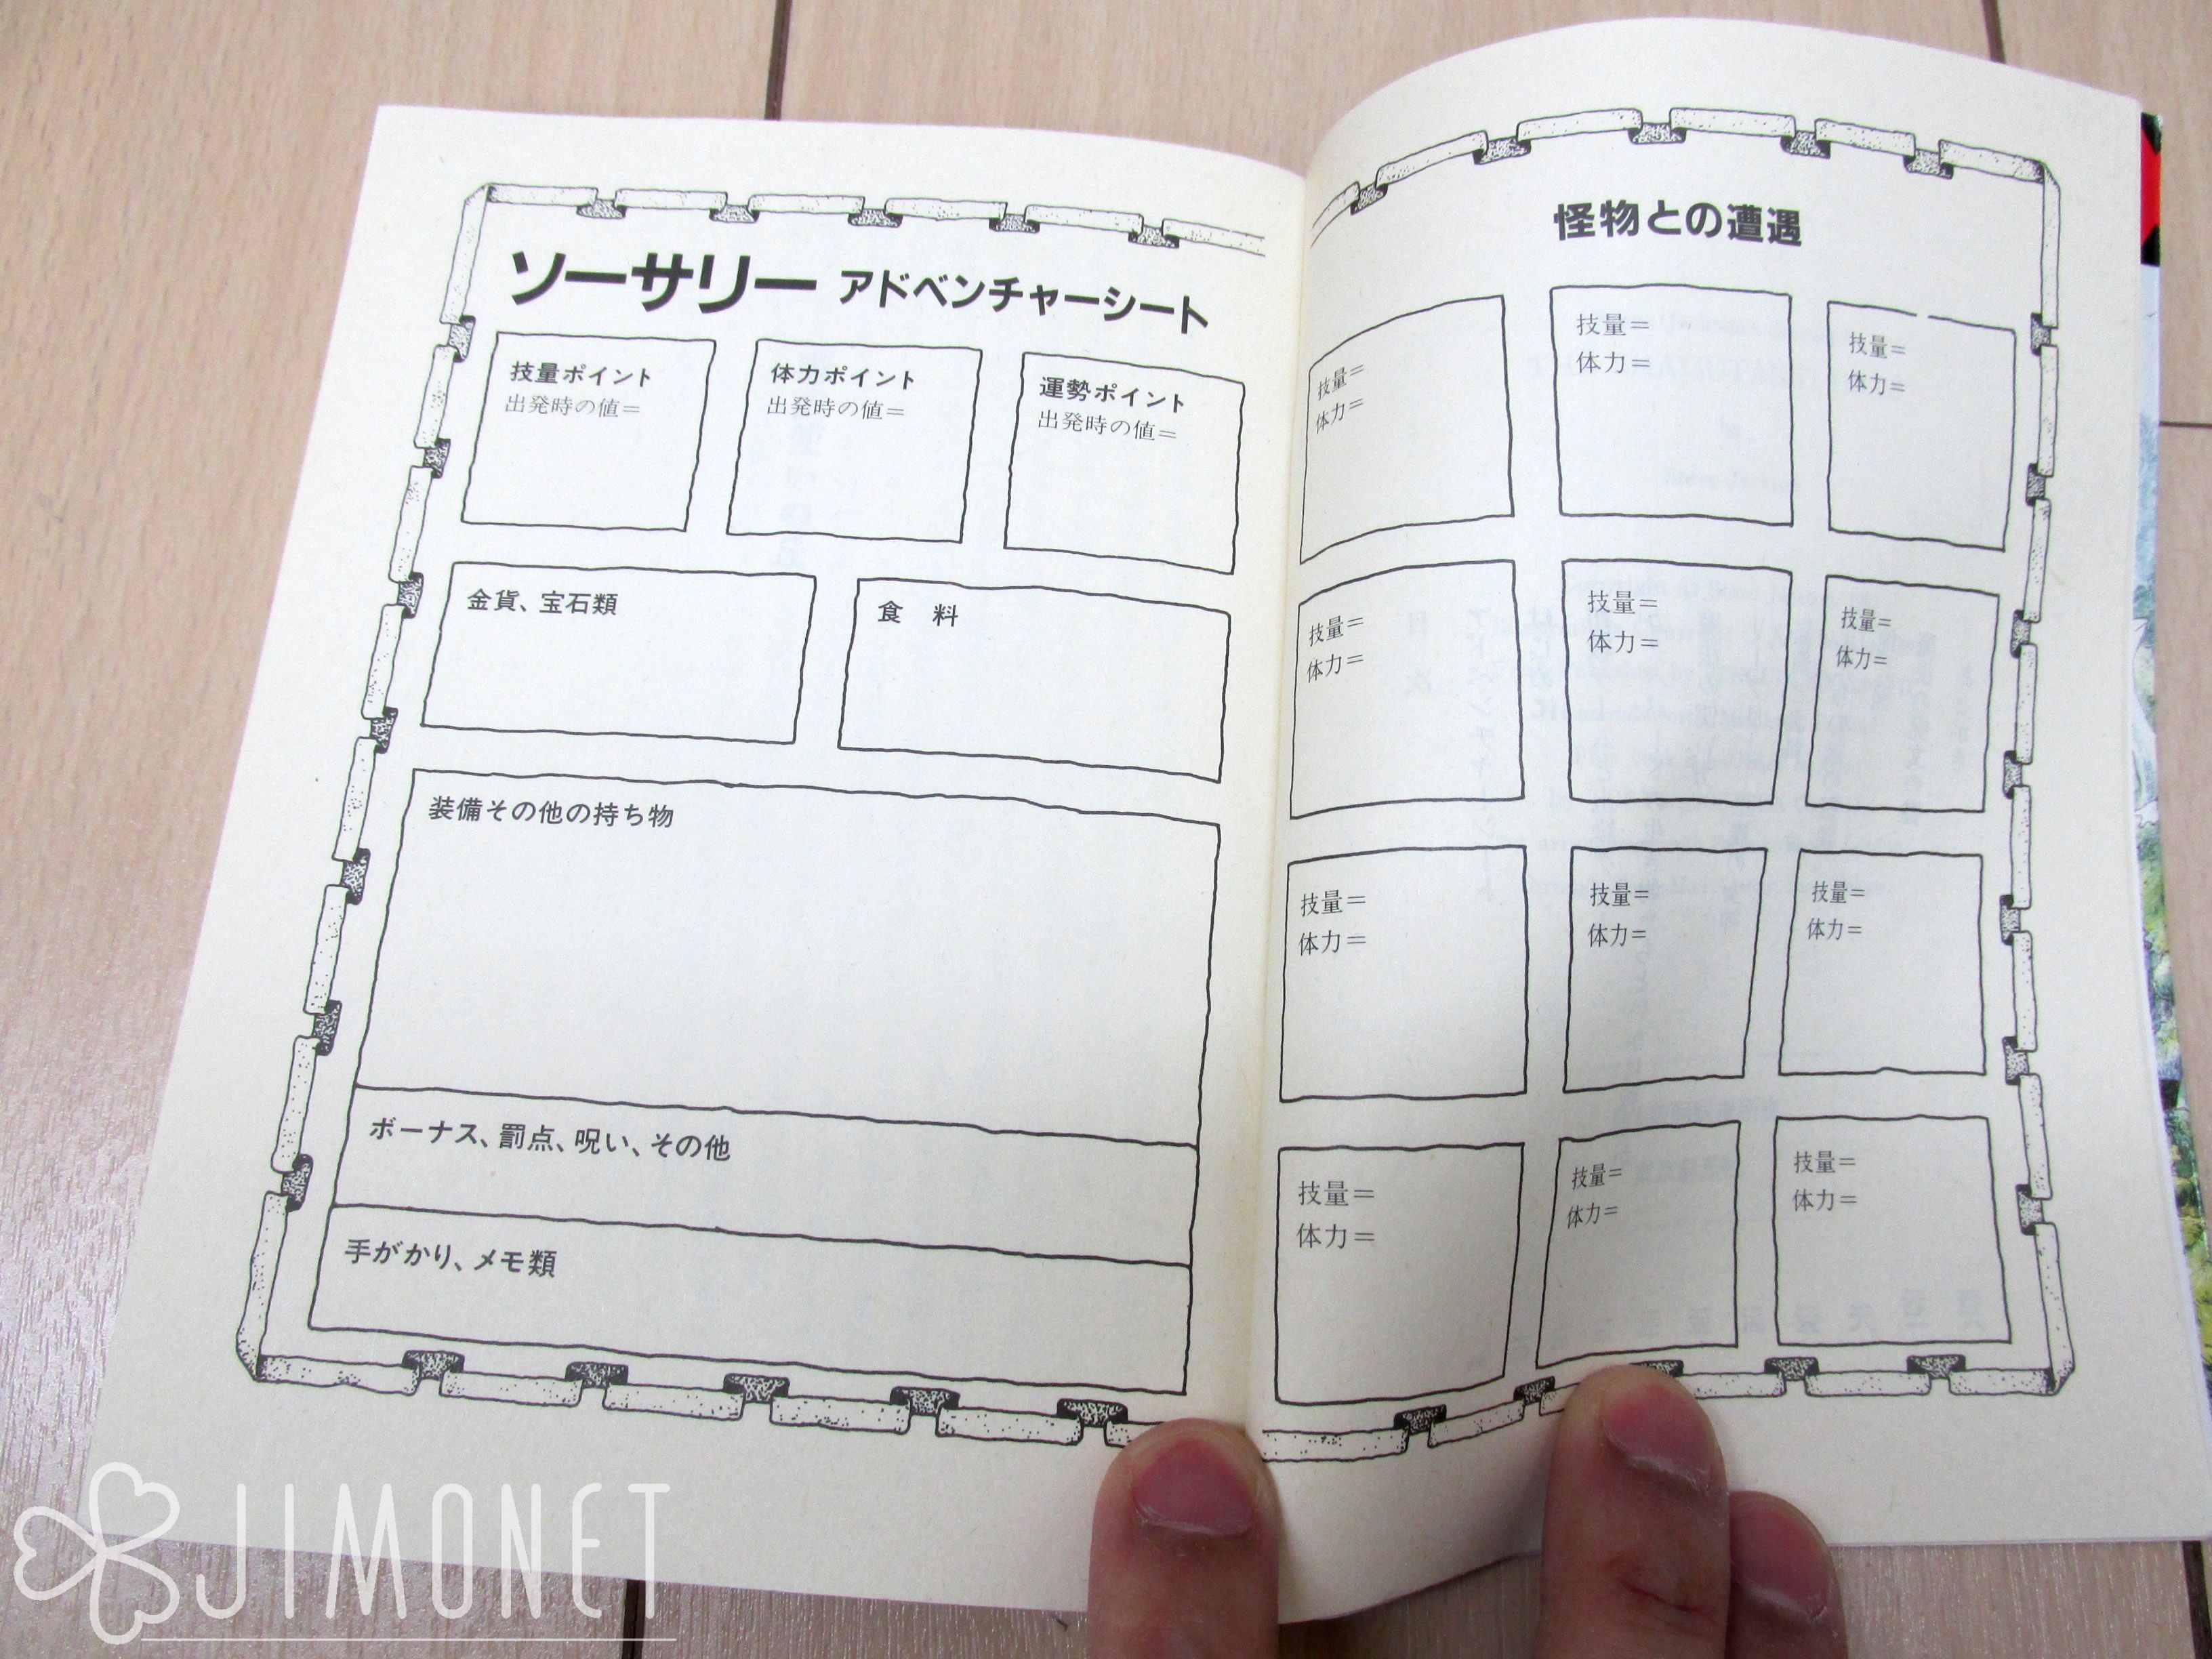 ソーサリー アドベンチャーシート
技量ポイント
出発時の値=
体力ポイント
出発時の値=
運勢ポイント
出発時の値=
金貨、宝石類
食 料
装備その他の持ち物
ボーナス、罰点、呪い、その他
手がかり、メモ類
怪物との遭遇
技量=
体力=
技量=
体力=
技量=
体力=
技量=
体力=
技量=
体力=
技量=
体力=
技量=
体力=
技量=
体力=
技量=
体力=
技量=
体力=
技量=
体力=
技量=
体力=
JIMONET